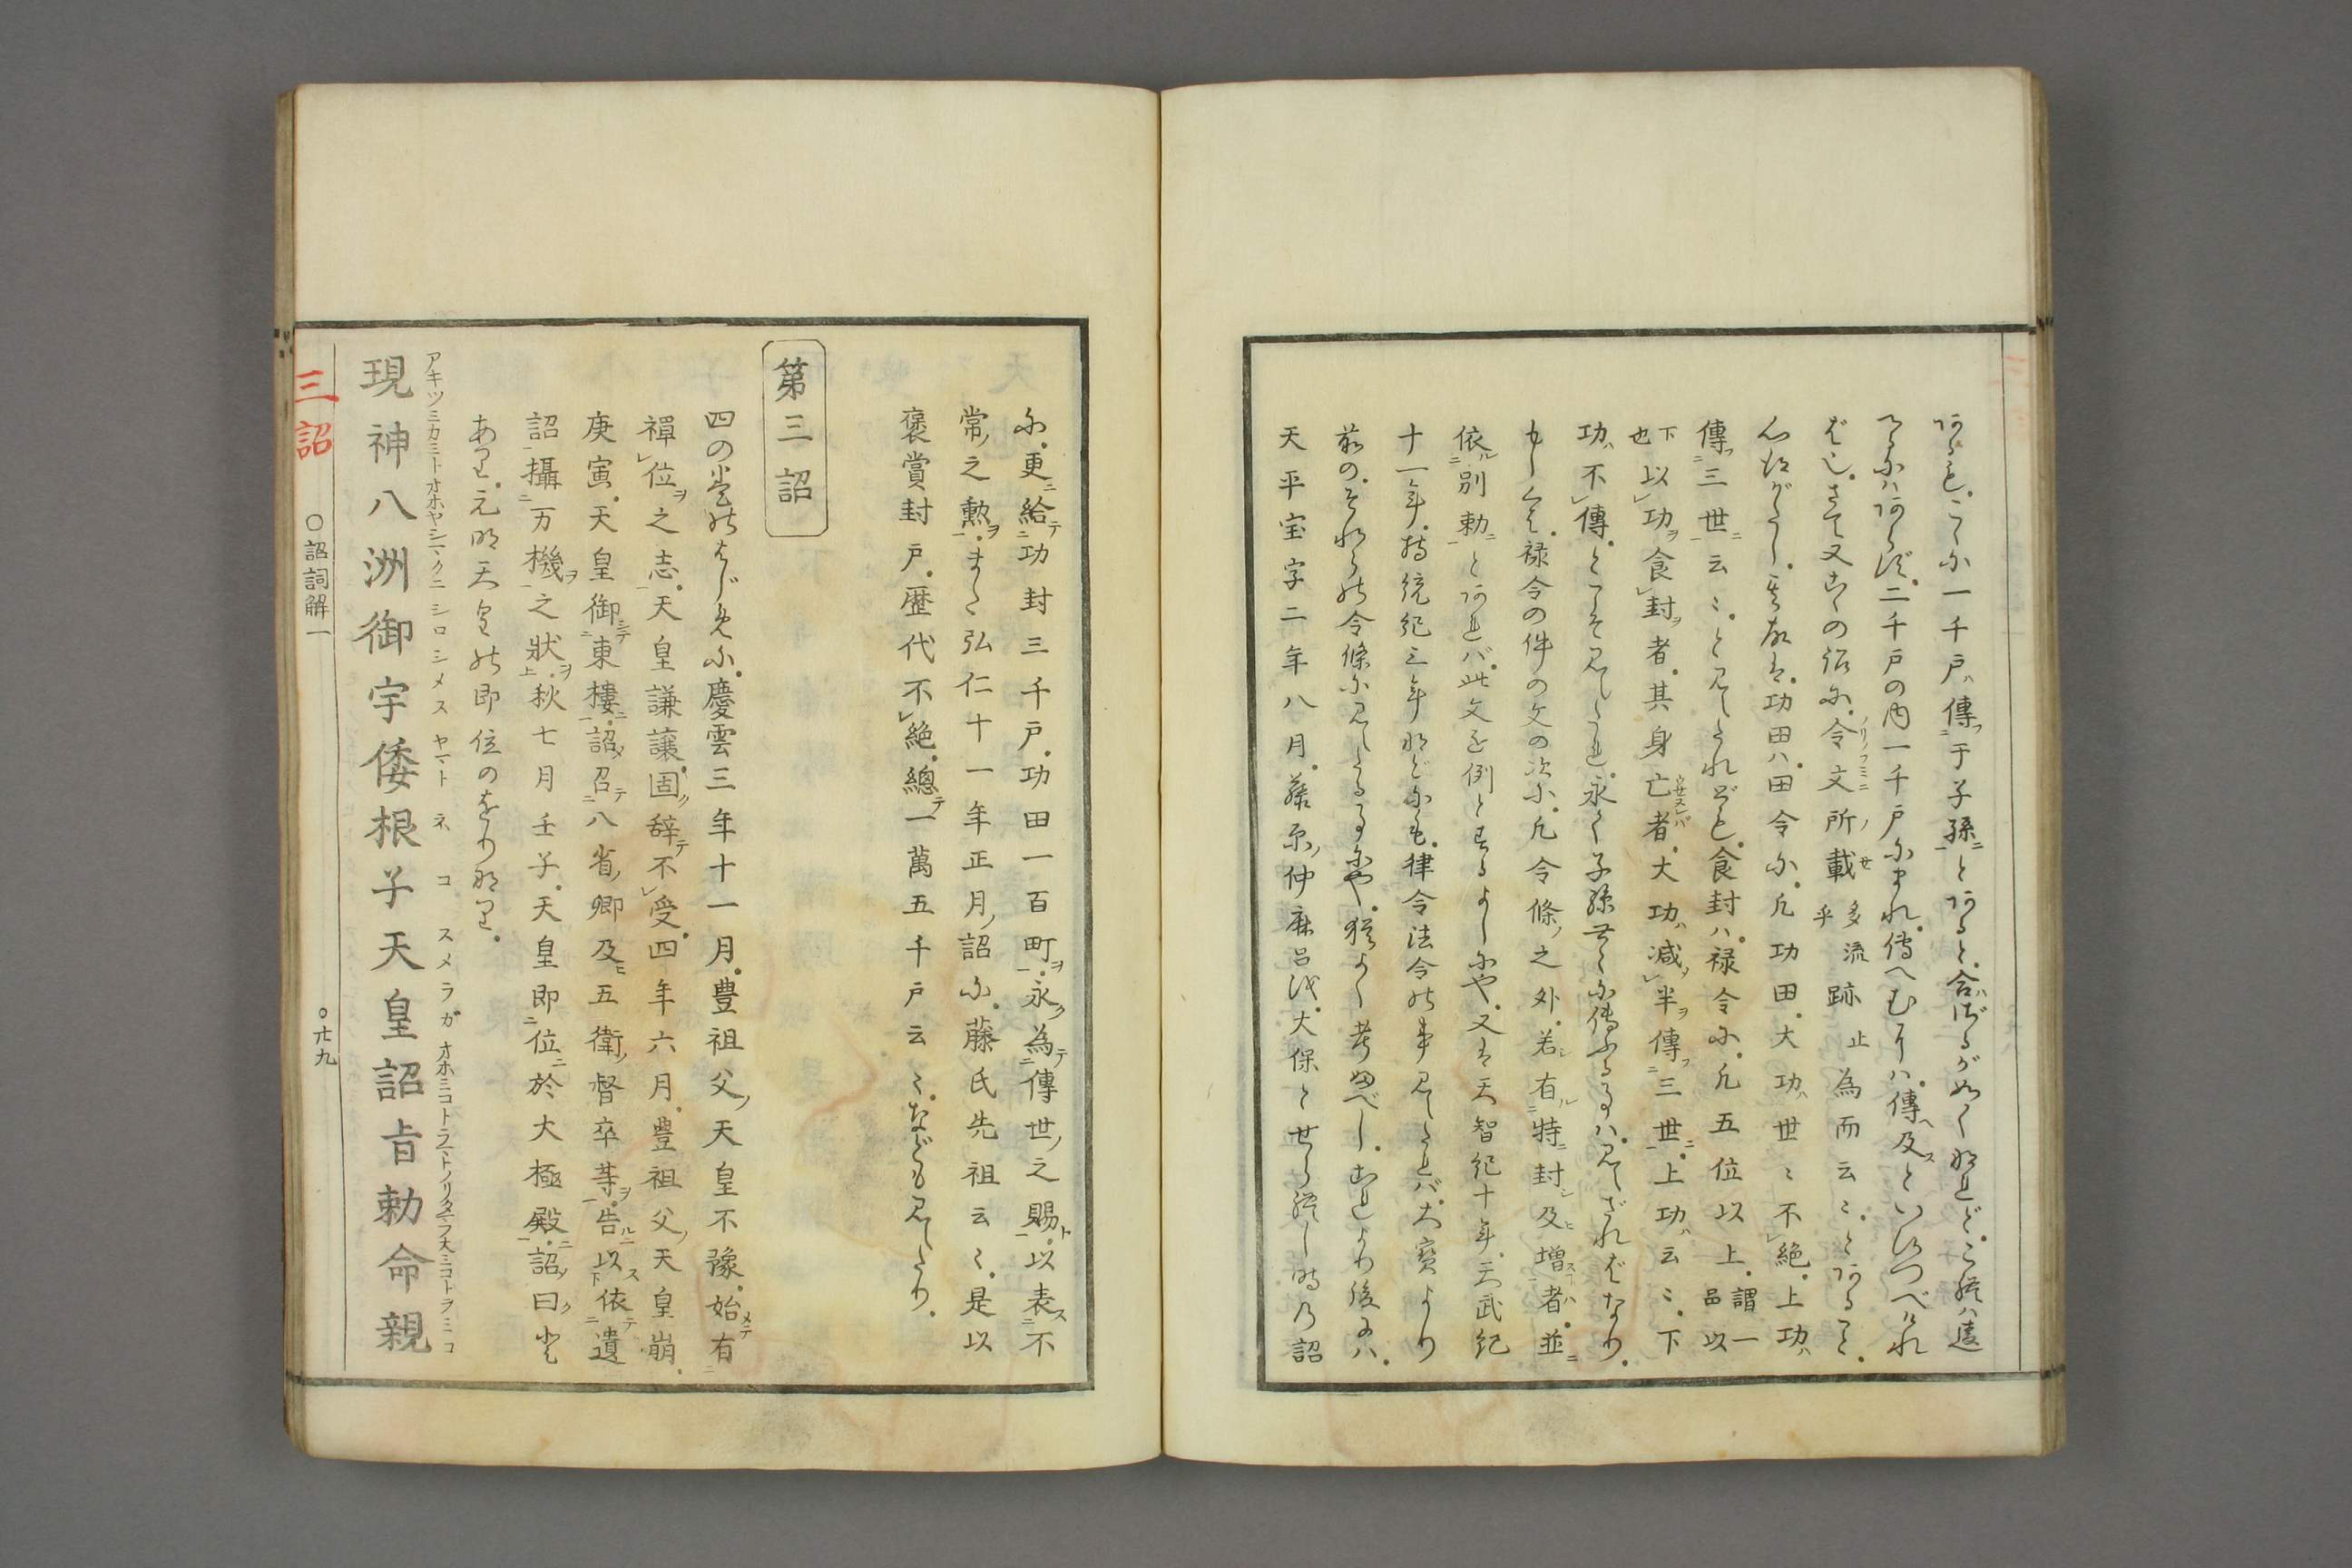 あれも。こゝに一千戸ハ傳于子孫とあると。合ざるが如くなれど。こ
るにハあらず。二千戸の内一千戸にまれ。傳へむにハ。傳及といひつべけれ
ばし。さて又こゝの
令文所載
多流跡止為而云々。とあること。
功田ハ。田令に。凡功田。大功世々不絶。上功ハ
傳三世云々。と見えたれども。食封ハ。禄令に。凡五位以上。謂一品以
下也以功食封者。其身亡者。大功ハ減半傳三世。上功ハ云々。下
功ハ不傳。とこそ見えたれ。永く子孫世々に傳ふる事ハ。見えざればなり。
もしくは。禄令の件の文の次に。凡令條之外。若有特封及増者。並
依別勅とあれバ。此文を例とするよしにや。又は天智紀十年。天武紀
十一年。持統紀三年などにも。律令法令の事見えたれバ。大寳より
前の。それらの令條に見えたる事にや。猶よく考ふべし。これより後にハ。
天平宝字二年八月。藤原仲麻呂を。大保とせられし時の詔
に。更給功封三千戸。功田一百町。永為傳世之賜。以表不
常之勲。また弘仁十一年正月ノ詔に。藤氏先祖云々。是以
褒賞封戸。歴代不絶。總一萬五千戸云々。なども見えたり。
第三詔
四の巻のはじめに。慶雲三年十一月。豊祖父天皇不豫。始有
禪位之志。天皇謙譲。固辞不受。四年六月。豊祖父天皇崩。
庚寅。天皇御東樓。詔召八省卿及五衛督卒等。告以依遺
詔攝万機之狀。秋七月壬子。天皇即位於大極殿。詔曰と
あり。元明天皇の即位のをりなり。
アキツミカミトオホヤシマクニシロシメスヤマトネコスメラガオホミコトラマトノリタマフ大ミコトヲミコ
現神八洲御宇倭根子天皇詔旨勅命親
三詔
〇詔詞解一
〇廿九